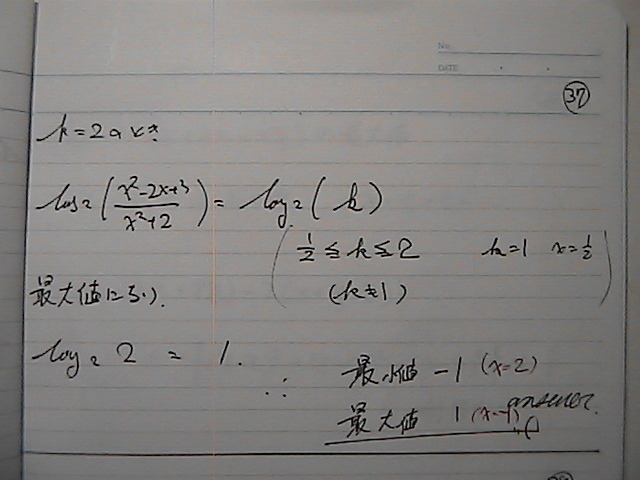 No.
DATE
㊲
k=2のとき
log₂(x²-2x+3/x²+2) = log₂(k)
(1/2 ≦ k ≦ 2 k=1 x=1/2
(k≠1))
最大値になり).
log₂ 2 = 1.
∴ 最小値 -1 (x=2)
最大値 1 (x=-1) answer.